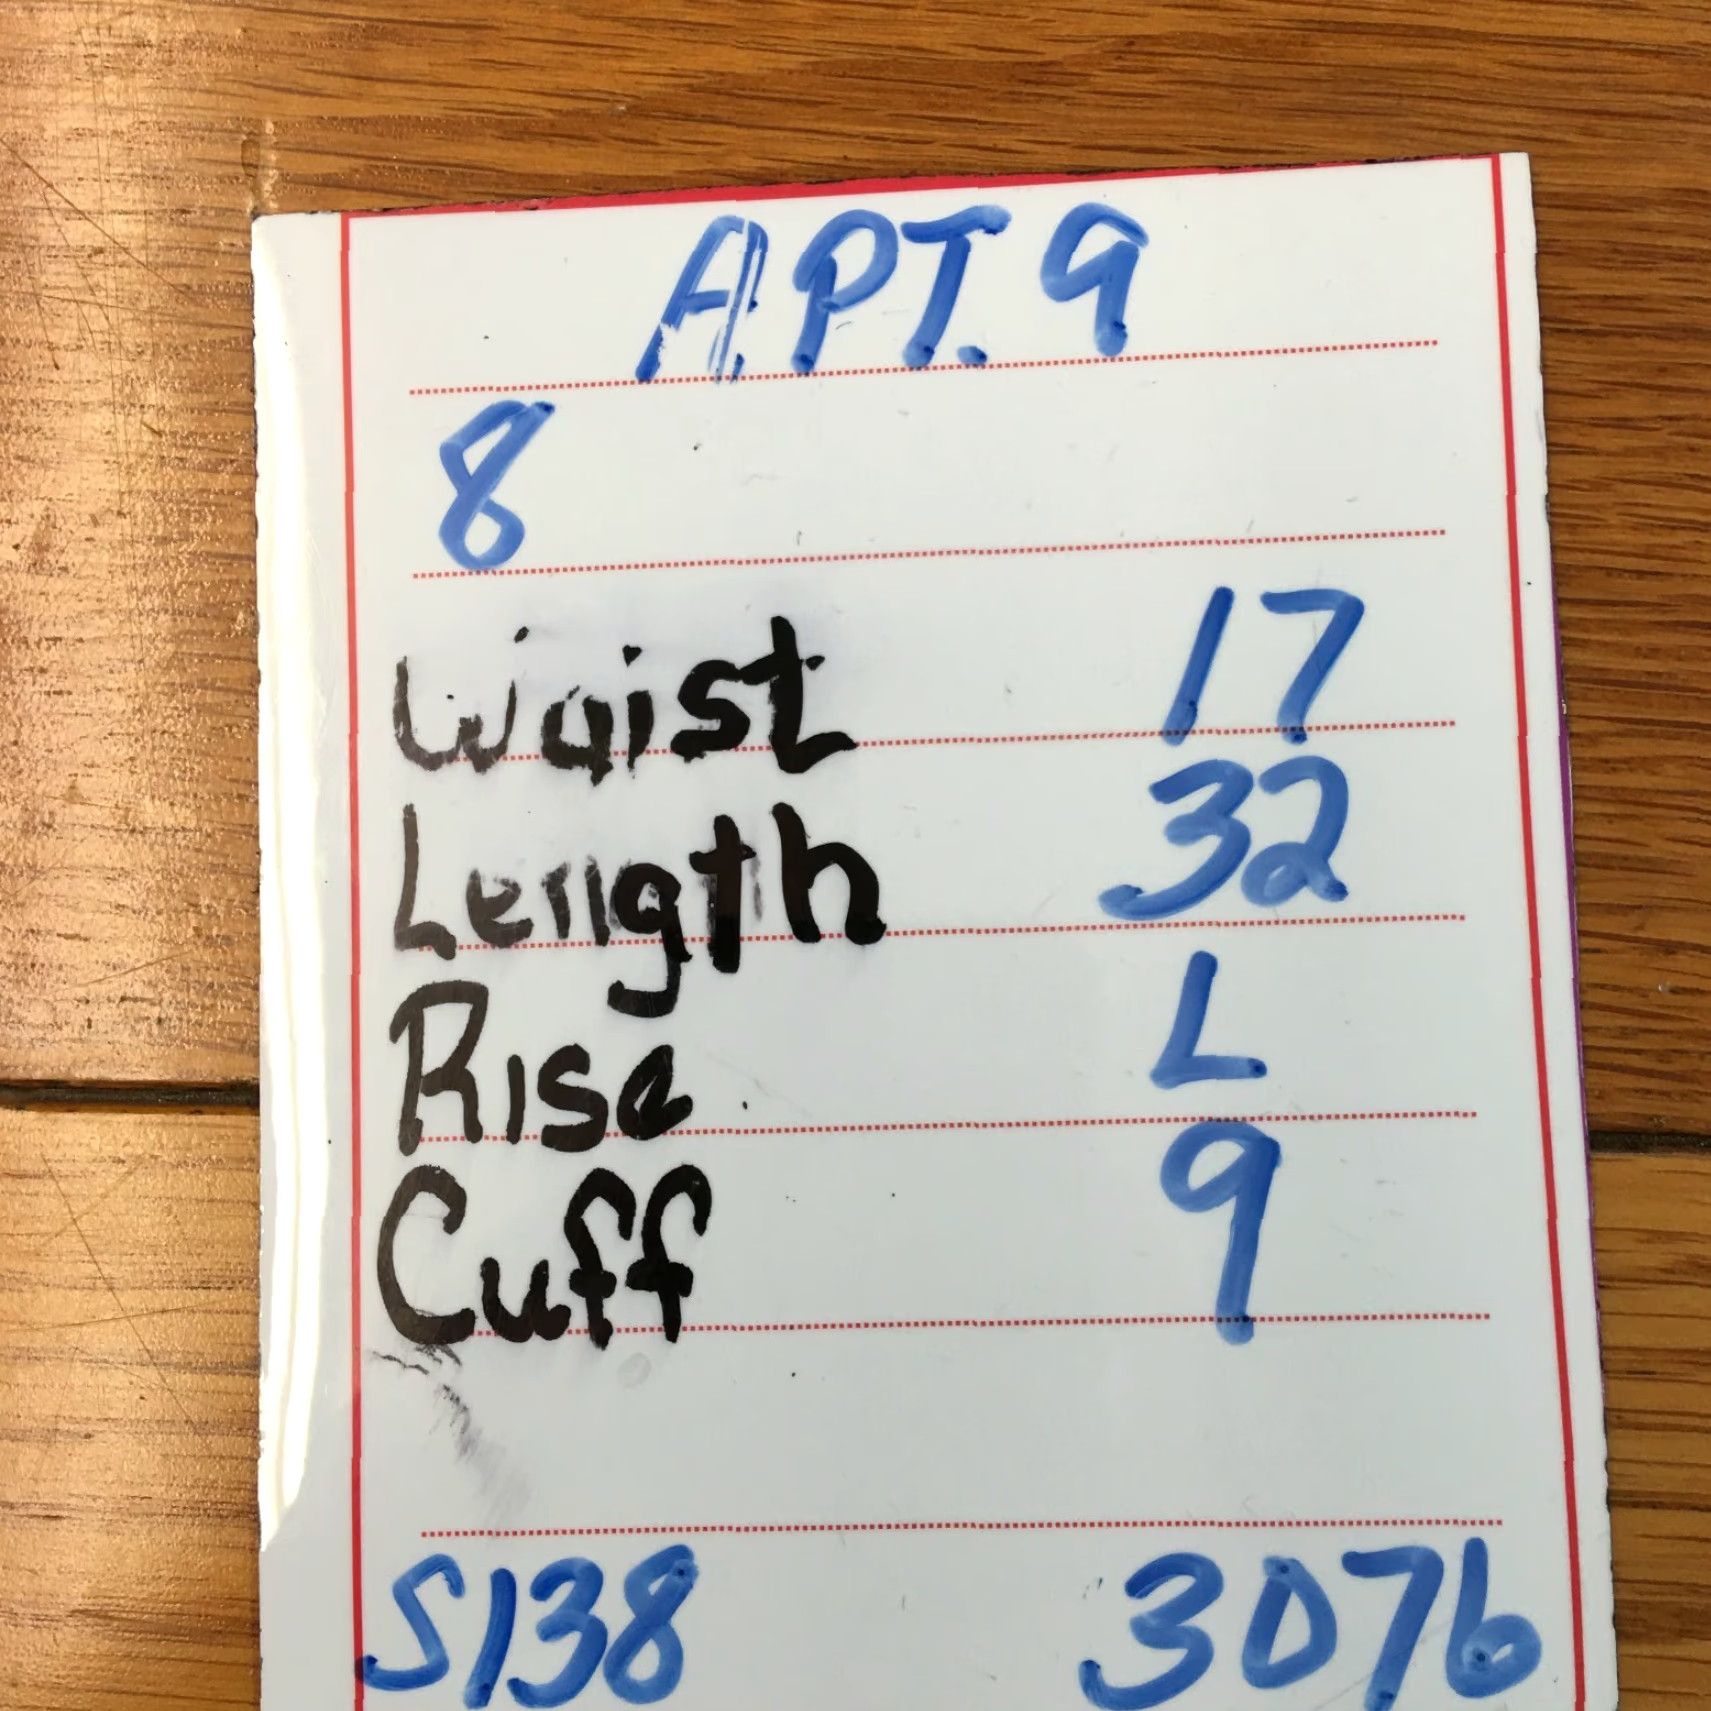 A.PT. 9
8
Waist 17
Length 32
Rise L
Cuff 9
S138 3076